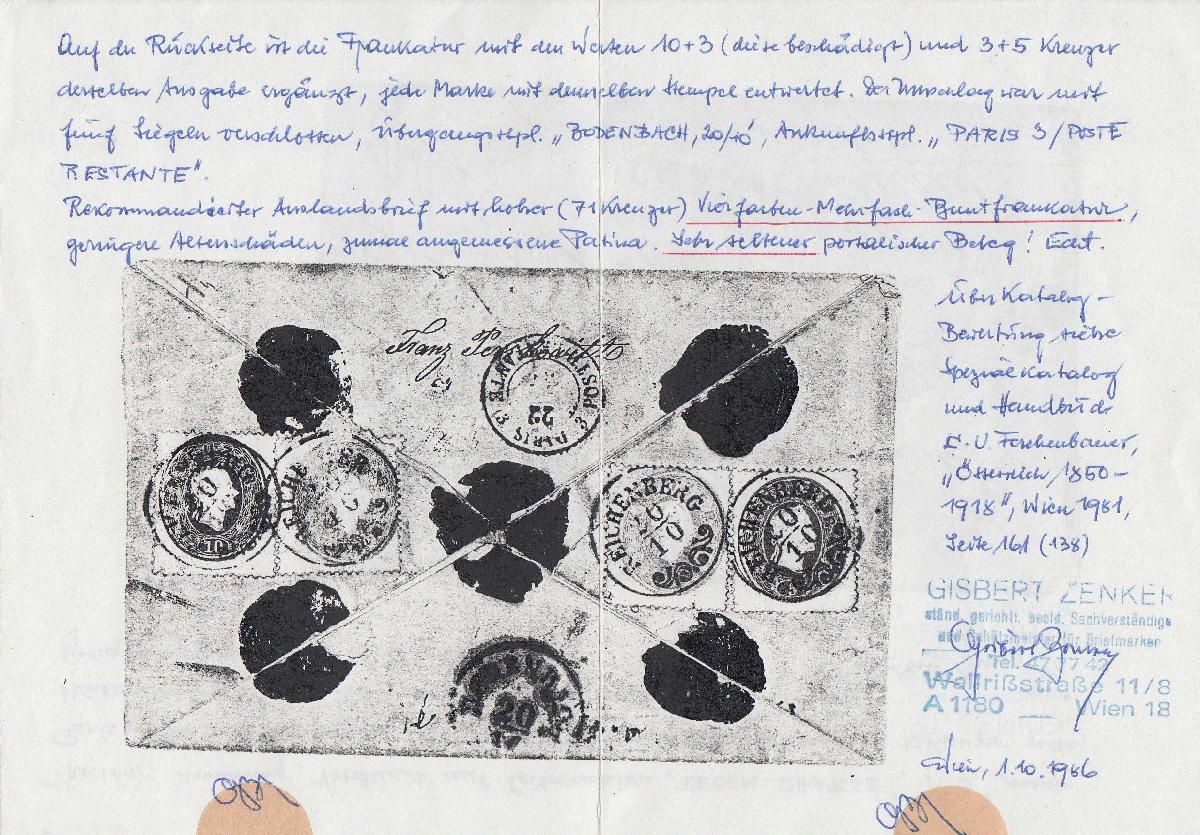 Auf der Rückseite ist die Frankatur mit den Werten 10+3 (diese beschädigt) und 3+5 Kreuzer
derselben Ausgabe ergänzt, jede Marke mit demselben Stempel entwertet. Der Umschlag war mit
fünf Siegeln verschlossen, Übergangsstpl. „BODENBACH, 20/10", Ankunftsstpl. „PARIS 3/POSTE
RESTANTE".
Rekommandierter Auslandsbrief mit hoher (71 Kreuzer) Vierfarben-Mehrfach-Buntfrankatur,
geringere Altersschäden, zumal angemessene Patina. Sehr seltener postalischer Beleg! Echt.
Über Katalog-
Bewertung siehe
Spezialkatalog
und Handbuch
Dr. U. Ferchenbauer,
„Österreich 1850-
1918", Wien 1981,
Seite 161 (138)
Franz
POSTE RESTANTE
PARIS 3
22
10
REICHE
REICHENBERG
20
10
REICHENBERG
20
10
20
GISBERT ZENKER
ständ. gerichtl. beeid. Sachverständige
und Schätzmeister für Briefmarken
Tel. 47 77 42
Wallrißstraße 11/8
A 1180 Wien 18
Wien, 1.10.1986